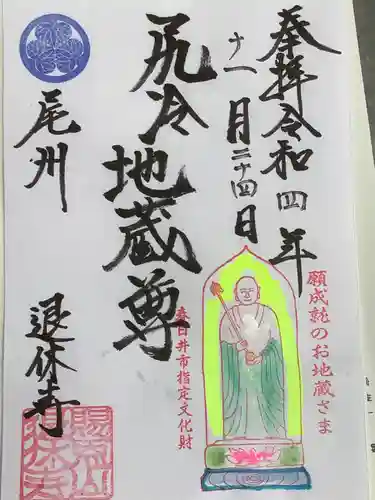 奉拝令和四年
十一月二十四日
願成就のお地蔵さま
尻冷地蔵尊
春日井市指定文化財
尾州
退休寺